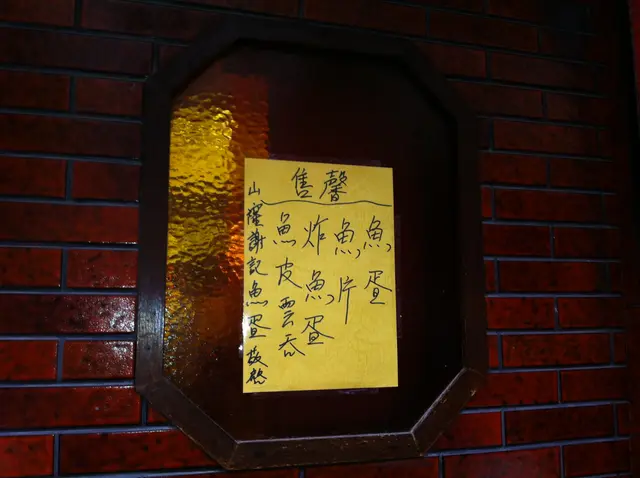 售馨
魚蛋
魚片
炸魚蛋
魚皮雲吞
山窿謝記魚蛋敬啓